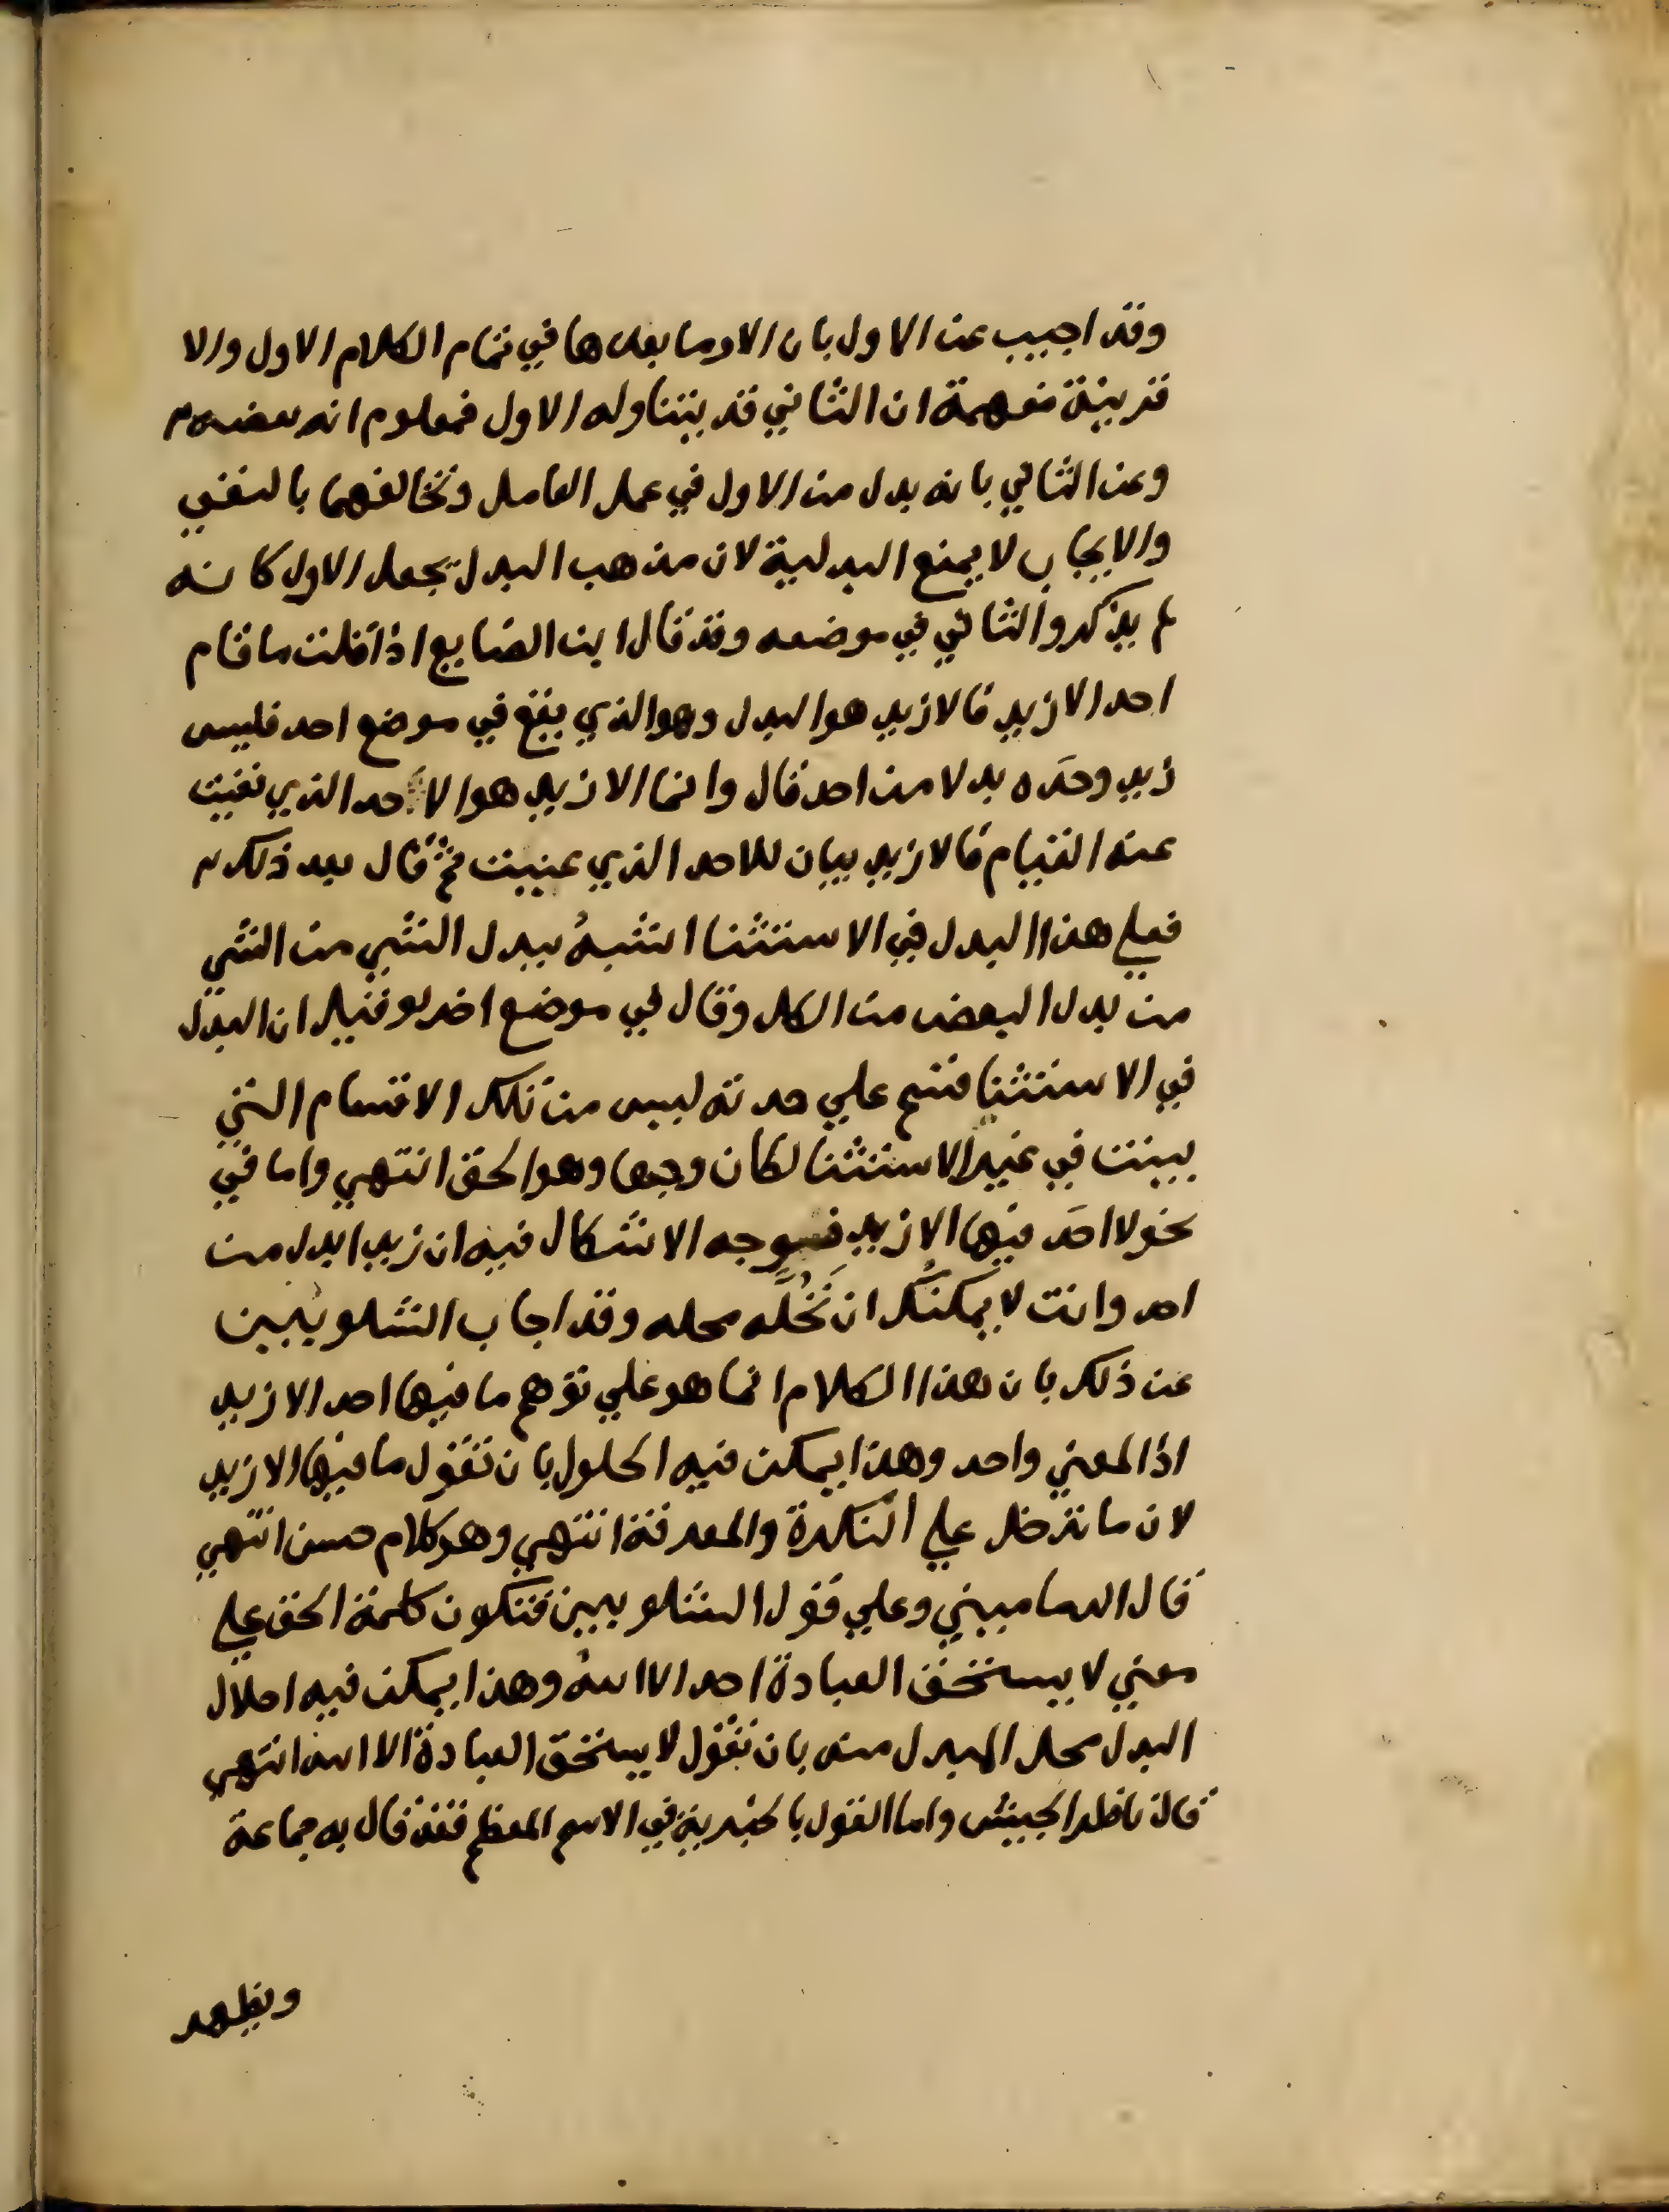 وقد اجيب عن الاول بان الا وما بعدها في تمام الكلام الاول والا
قرينة مفهمة ان الثاني قد يتناوله الاول فمعلوم انه بعضه
وعن الثاني بانه بدل من الاول في عمل العامل وتخالفهما بالنفي
والايجاب لا يمنع البدلية لان مذهب البدل يجعل الاول كانه
لم يذكر والثاني في موضعه وقد قال ابن الصايع اذا قلت ما قام
احد الا زيد فالا زيد هو البدل وهو الذي يقع في موضع احد فليس
زيد وحده بدلا من احد قال وانما الا زيد هو الاحد الذي نفيت
عنه القيام فالا زيد بيان للاحد الذي عنيت ثم قال بعد ذلك
فعلي هذا البدل في الاستثنا اشبه ببدل الشي من الشي
من بدل البعض من الكل وقال في موضع اخر لو قيل ان البدل
في الاستثنا قسم علي حدته ليس من تلك الاقسام التي
بينت في غير الاستثنا لكان وجها وهو الحق انتهي واما في
نحو لا احد فيها الا زيد فوجه الاشكال فيه ان زيدا بدل من
احد وانت لا يمكنك ان تحله محله وقد اجاب الشلوبين
عن ذلك بان هذا الكلام انما هو علي توهم ما فيها احد الا زيد
اذ المعني واحد وهذا يمكن فيه الحلول بان تقول ما فيها الا زيد
لان ما تدخل علي النكرة والمعرفة انتهي وهو كلام حسن انتهي
قال الدماميني وعلي قول الشلوبيين فتكون كلمة الحق علي
معني لا يستحق العبادة احد الا الله وهذا يمكن فيه احلال
البدل محل المبدل منه بان تقول لا يستحق العبادة الا الله انتهي
قال ناظر الجيش واما القول بالخبرية في الاسم المعظم فقد قال به جماعة
ويظهر